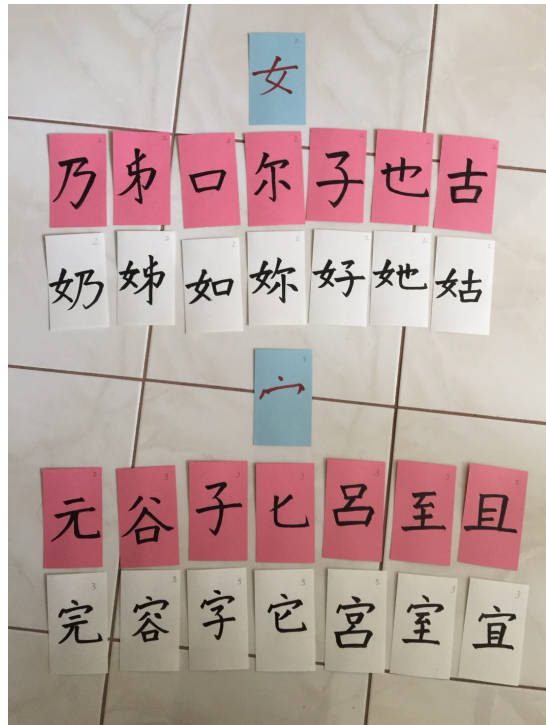 女
乃 𠂔 口 尔 子 也 古
奶 姊 如 妳 好 她 姑
宀
元 谷 子 匕 呂 至 且
完 容 字 它 宮 室 宜